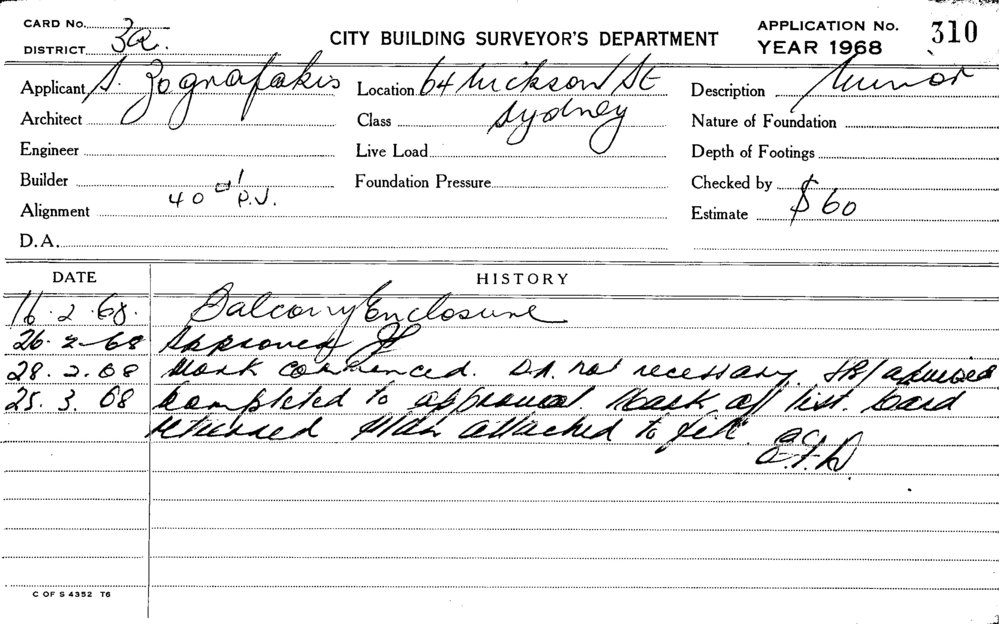 CARD No.
DISTRICT 3a.
CITY BUILDING SURVEYOR'S DEPARTMENT
APPLICATION No. 310
YEAR 1968
Applicant S. Zografakis
Location 64 Hickson St
Sydney
Description Minor
Architect
Class
Nature of Foundation
Engineer
Live Load
Depth of Footings
Builder
Foundation Pressure
Checked by
Alignment 40 P.J.
Estimate $60
D.A.
DATE HISTORY
16.2.68. Balcony Enclosure
26.2.68 Approved
28.2.68 Work commenced. D.A. not necessary. advised
25.3.68 Completed to approval. Mark off list. Card
returned Plan attached to file.
C OF S 4352 T6